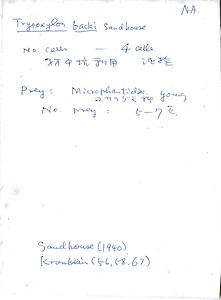 N.A.
Trypoxylon backi Sandhouse
No. cells — 4 cells
Prey: Microphantidae young
No. prey: 5–7
Sandhouse (1940)
Krombein (56, 58, 67)